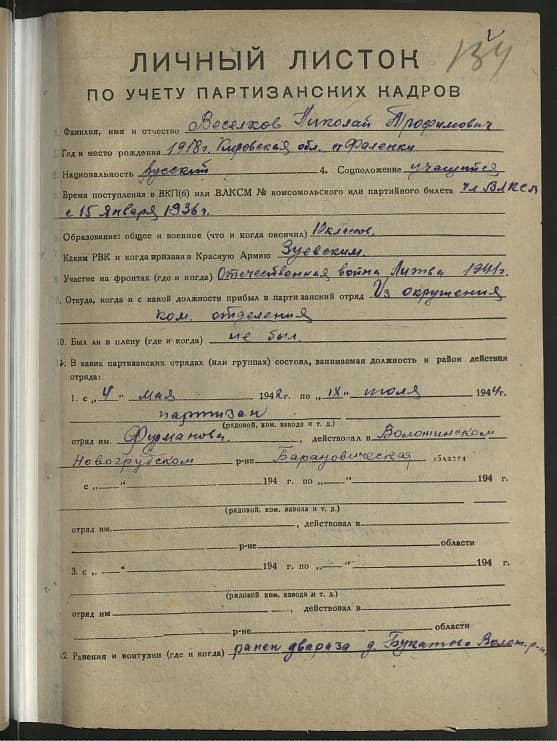 134
ЛИЧНЫЙ ЛИСТОК
ПО УЧЕТУ ПАРТИЗАНСКИХ КАДРОВ
Фамилия, имя и отчество Веселков Николай Трофимович
Год и место рождения 1918 г. Кировская обл. п. Фаленки
Национальность русский 4. Соцположение учащийся
Время поступления в ВКП(б) или ВЛКСМ № комсомольского или партийного билета чл ВЛКСМ
с 15 января 1936 г.
Образование: общее и военное (что и когда окончил) 10 классов.
Каким РВК и когда призван в Красную Армию Зуевским.
Участие на фронтах (где и когда) Отечественная война Литва 1941 г.
Откуда, когда и с какой должности прибыл в партизанский отряд Из окружения
ком. отделения
10. Был ли в плену (где и когда) не был.
В каких партизанских отрядах (или группах) состоял, занимаемая должность и район действия
отряда:
1. с „4" мая 1942 г. по „IX" июля 1944 г.
партизан
(рядовой, ком. взвода и т. д.)
отряд им. Фурманова, действовал в Воложинском
Новогрудском р-не Барановическая области
с „ " 194 г. по „ " 194 г.
(рядовой, ком. взвода и т. д.)
отряд им. , действовал в
р-не области
3. с „ " 194 г. по „ " 194 г.
(рядовой, ком. взвода и т. д.)
отряд им. , действовал в
р-не области
12 Ранения и контузии (где и когда) ранен двараза д. Волож. р-н.